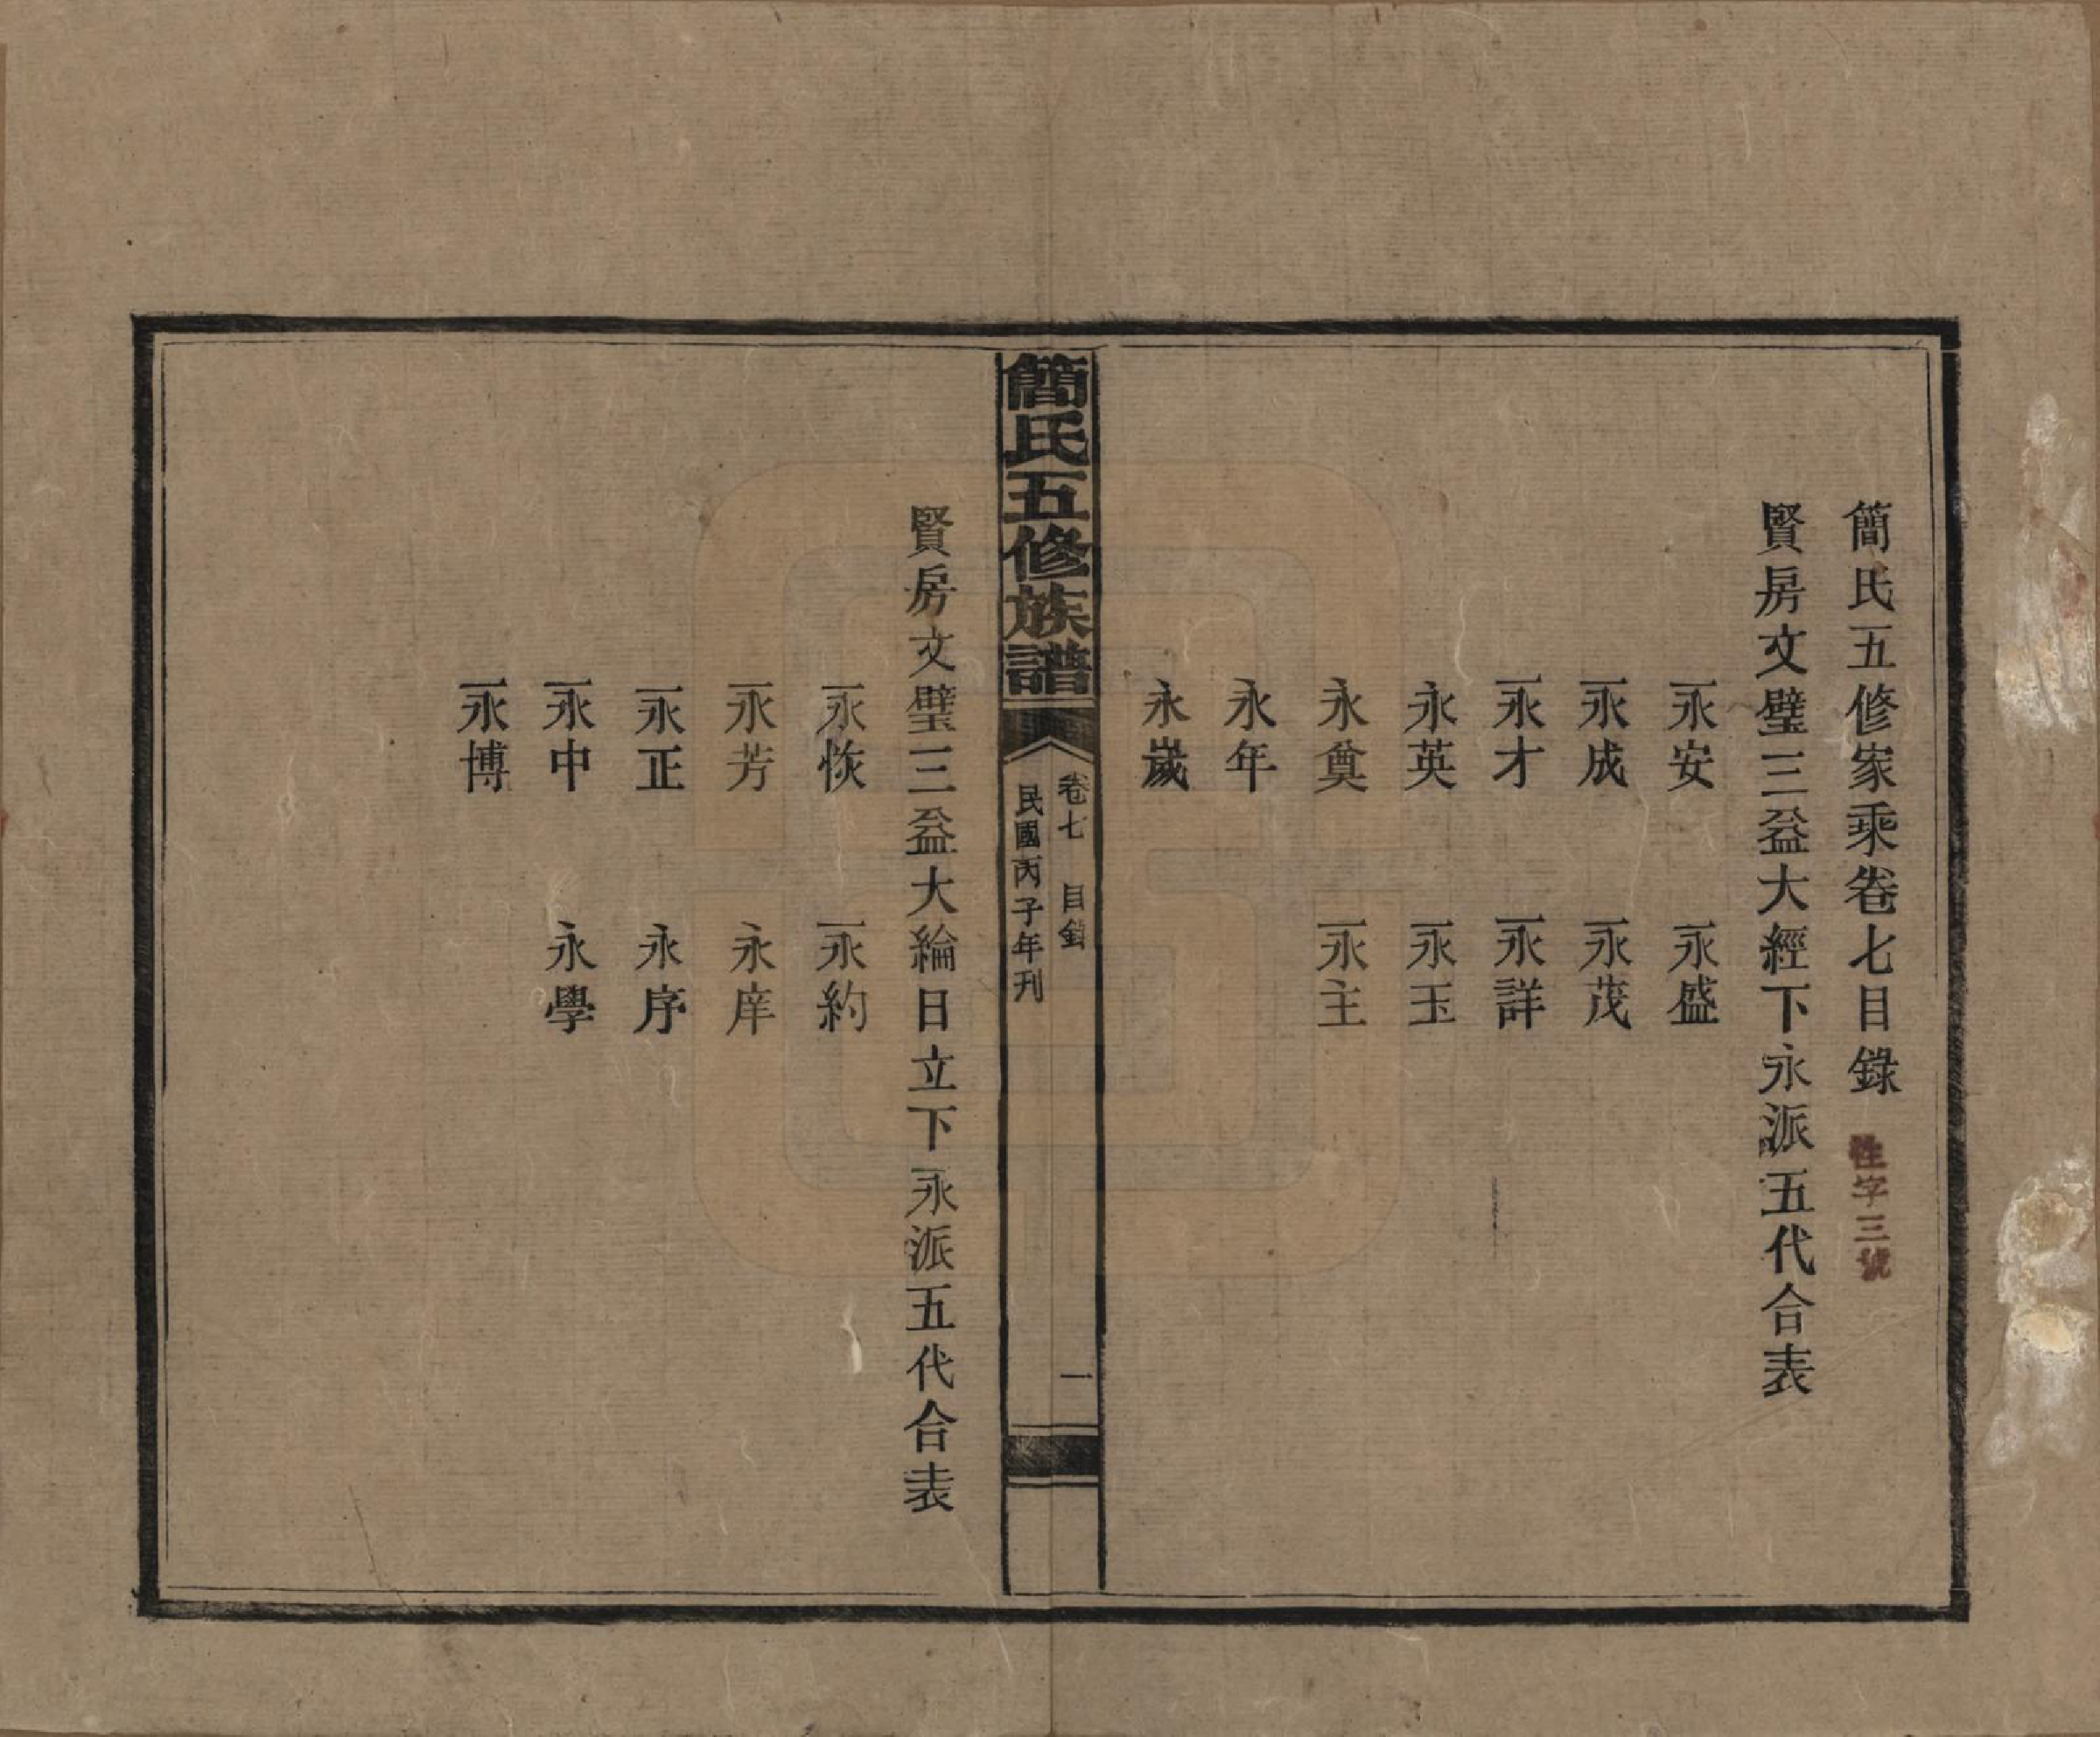 簡氏五修家乘卷七目錄 性字三號
賢房文璧三益大經下永派五代合表
永安 永盛
永成 永茂
永才 永詳
永英 永玉
永奠 永主
永年
永嵗
簡氏五修族譜
卷七 目錄 一
民國丙子年刊
賢房文璧三益大綸日立下永派五代合表
永恢 永約
永芳 永庠
永正 永序
永中 永學
永博